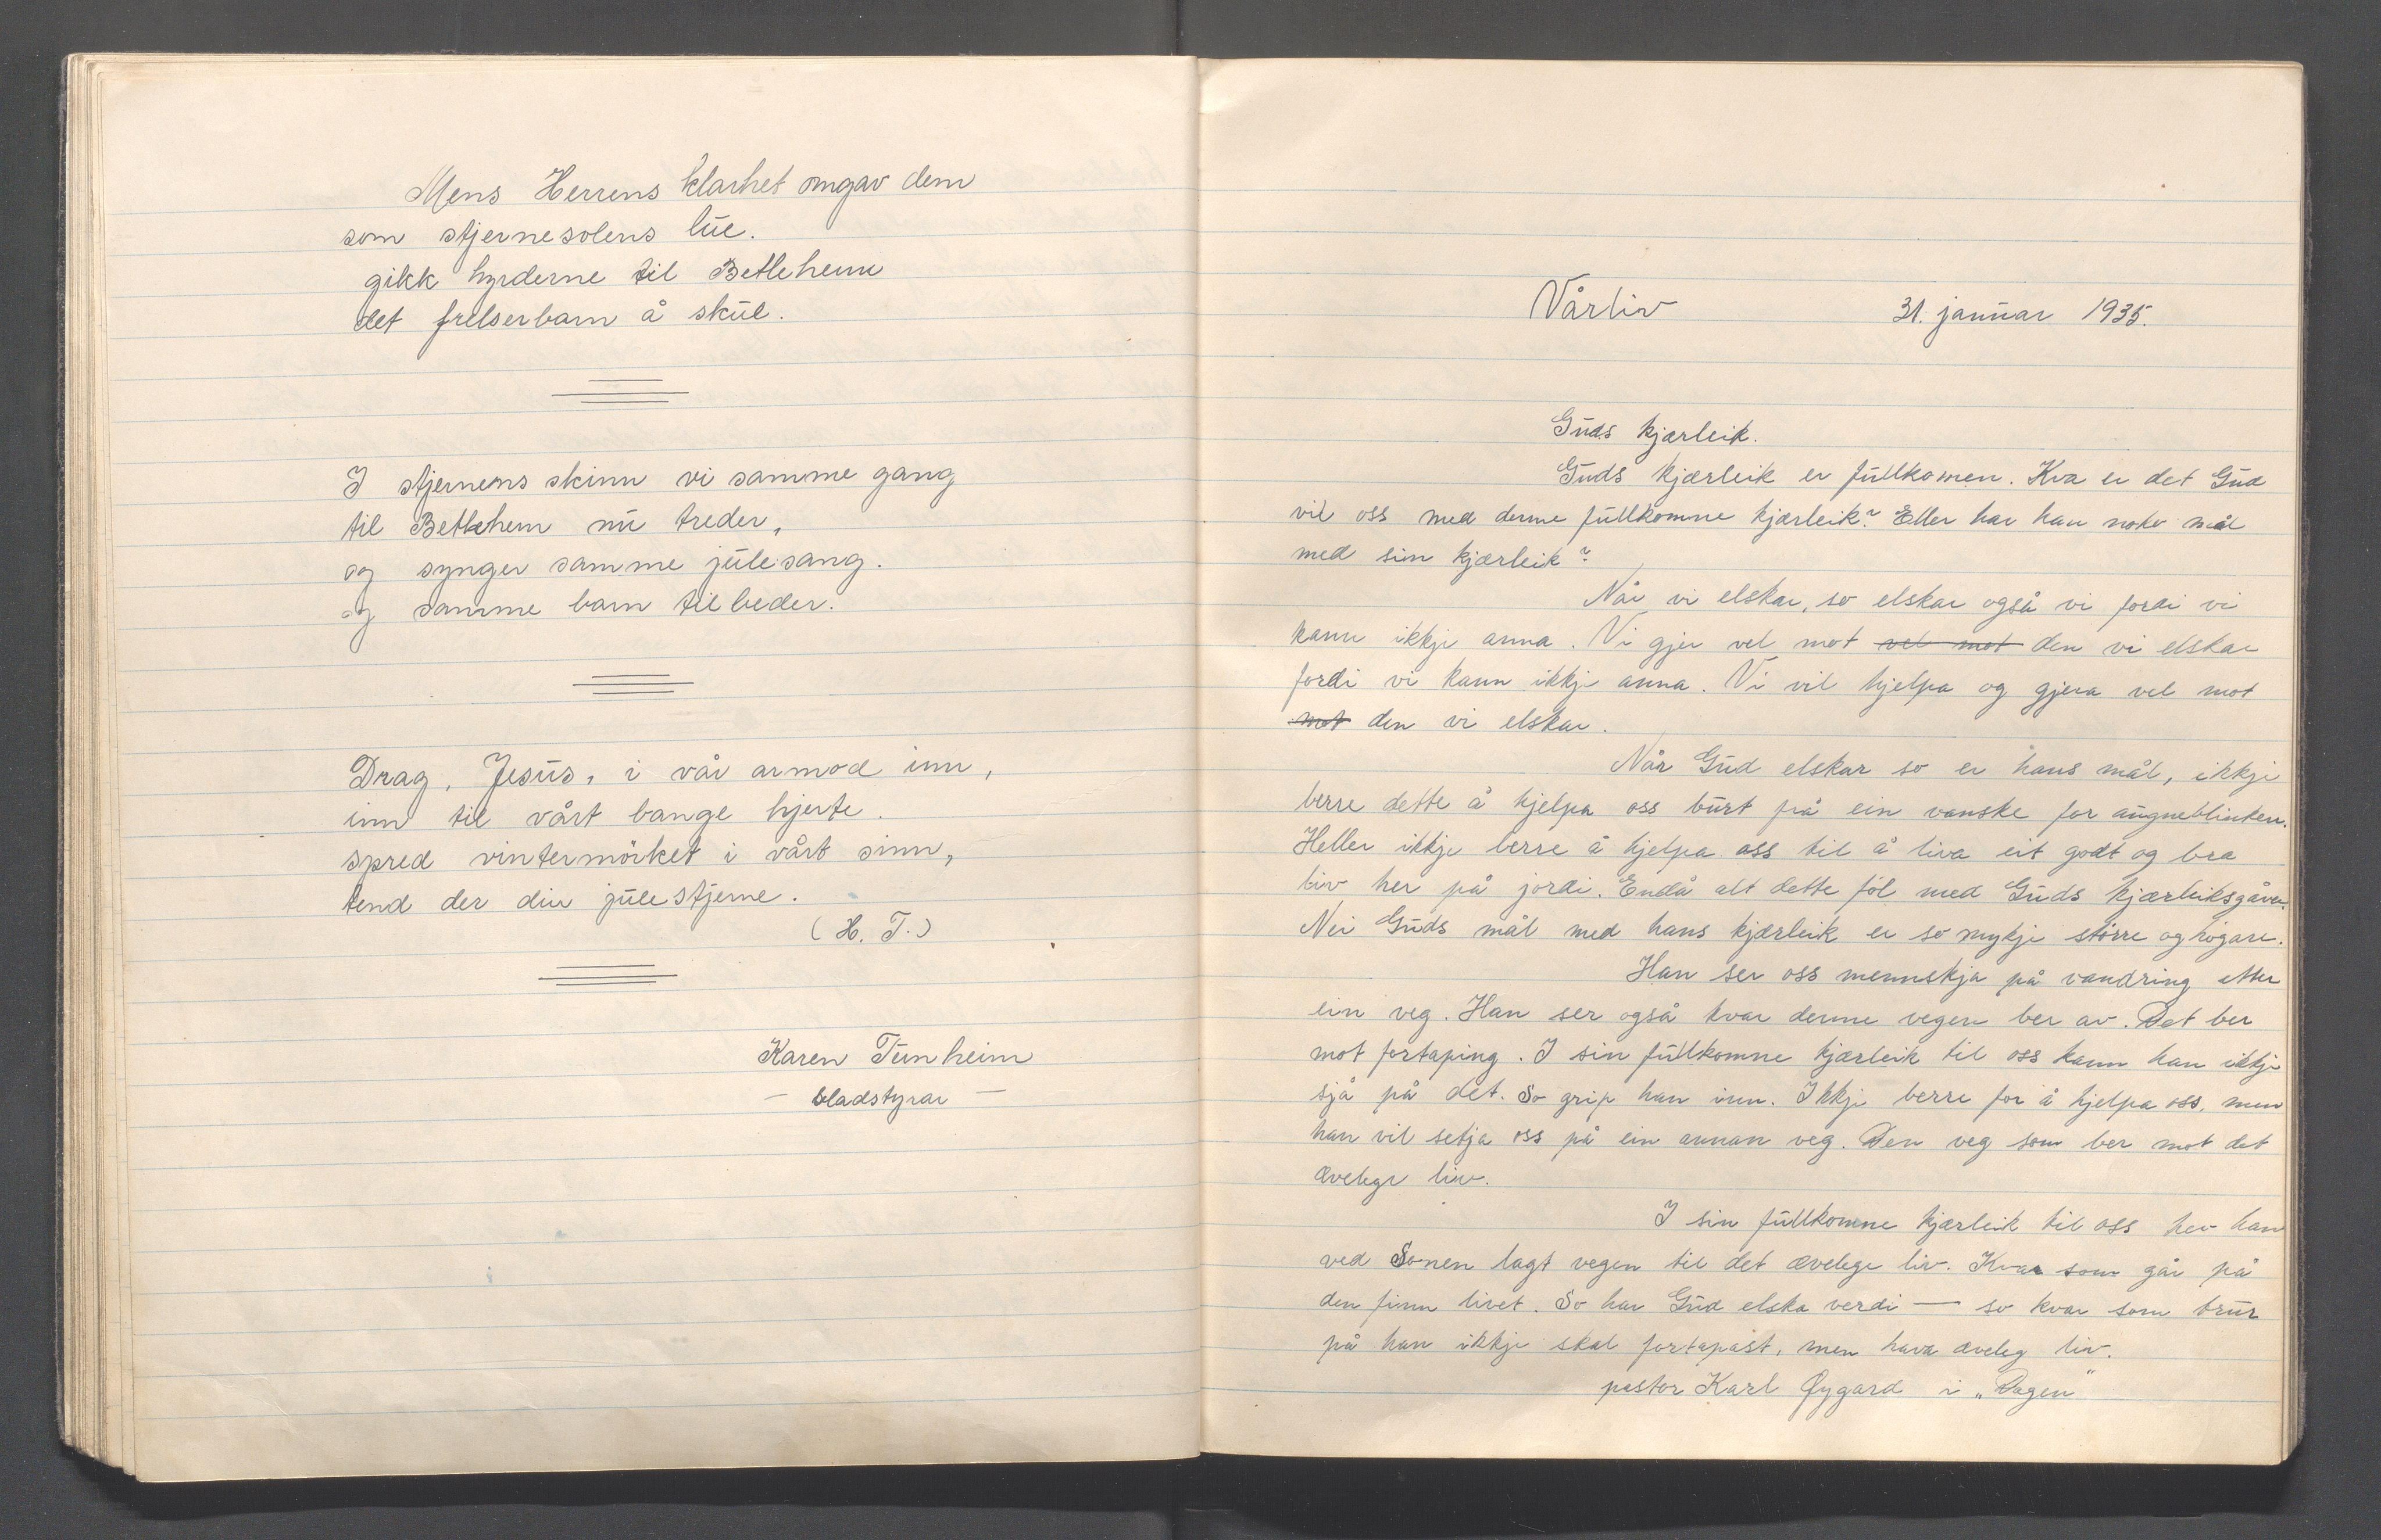 Mens Herrens klarhet omgav dem
som stjernesolens lue.
gikk hyrderne til Betlehem
det frelserbarn å skue.
I stjernens skinn vi samme gang
til Betlehem nu treder,
og synger samme julesang.
og samme barn tilbeder.
Drag, Jesus, i vår armod inn,
inn til vårt bange hjerte.
spred vintermörket i vårt sinn,
tend der din julestjerne.
(H. T.)
Karen Tunheim
- bladstyrar -
Vårliv 31. januar 1935.
Guds kjærleik.
Guds kjærleik er fullkomen. Kva er det Gud
vil oss med denne fullkomne kjærleik? Eller har han noko mål
med sin kjærleik?
Når vi elskar, so elskar også vi fordi vi
kann ikkje anna. Vi gjer vel mot vel mot den vi elskar
fordi vi kann ikkje anna. Vi vil hjelpa og gjera vel mot
mot den vi elskar.
Når Gud elskar so er hans mål, ikkje
berre dette å hjelpa oss burt frå ein vanske for augneblinken.
Heller ikkje berre å hjelpa oss til å liva eit godt og bra
liv her på jordi. Endå alt dette föl med Guds kjærleiksgåver.
Nei Guds mål med hans kjærleik er so mykje större og högare.
Han ser oss menneskja på vandring etter
ein veg. Han ser også kvar denne vegen ber av. Det ber
mot fortaping. I sin fullkomne kjærleik til oss kann han ikkje
sjå på det. So grip han inn. Ikkje berre for å hjelpa oss, men
han vil setja oss på ein annan veg. Den veg som ber mot det
ævelege liv.
I sin fullkomne kjærleik til oss hev han
ved Sonen lagt vegen til det ævelege liv. Kvar som går på
den finn livet. So har Gud elska verdi — so kvar som trur
på han ikkje skal fortapast, men hava æveleg liv.
pastor Karl Øygard i „Dagen"